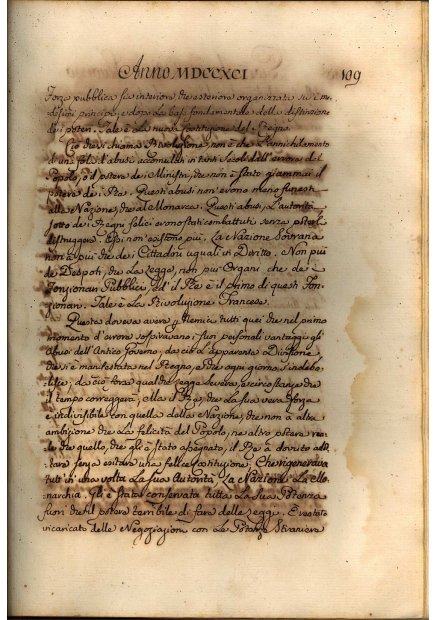 Anno MDCCXCI
109
Forza pubblica sia interiore, che esteriore organizzata su i me-
desimi principj, e dopo la base fondamentale della distinzione
dei poteri. Tale è la nuova Costituzione del Regno.
Ciò che si chiama Rivoluzione, non è che l'annichilamento
d'una folla d'abusi accumulati in tanti Secoli dall'errore del
Popolo, o il potere dei Ministri, che non è stato giammai il
potere dei Re. Questi abusi non erono meno funesti
alla Nazione, che al Monarca. Questi abusi, l'autorità
sotto dei Regni felici erono stati combattuti senza poterli
distruggere. Essi non esistono più. La Nazione Sovrana
non à più che dei Cittadini uguali in Diritto. Non più
che Despoti, che la Legge, non più Organi che dei
Fonzionari Pubblici, ed il Re è il primo di questi Fon-
zionari. Tale è la Rivoluzione Francese.
Questa doveva avere p Nemici tutti quei che nel primo
momento d'errore sospiravano i suoi personali vantaggi gli
Abusi dell'Antico Governo, da ciò l'apparente Divisione
che si è manifestata nel Regno, e che ogni giorno s'indebo-
lisce; da ciò forse qualche legge severa, e circostanze che
il tempo correggerà, Ma il Re, che la sua vera forza
è indivisibile con quella della Nazione, che non à altra
ambizione che la felicità del Popolo, ne altro potere rea-
le che quello, che gli è stato assegnato, il Re à dovuto adot-
tare senza esitare una felice Costituzione, Che rigenerava
tutt'in una volta la sua Autorità, la Nazione, la Mo-
narchia. Gli è stata conservata tutta la sua Potenza
fuori che il potere terribile di fare delle leggi. È restato
incaricato delle Negoziazioni con le Potenze Straniere